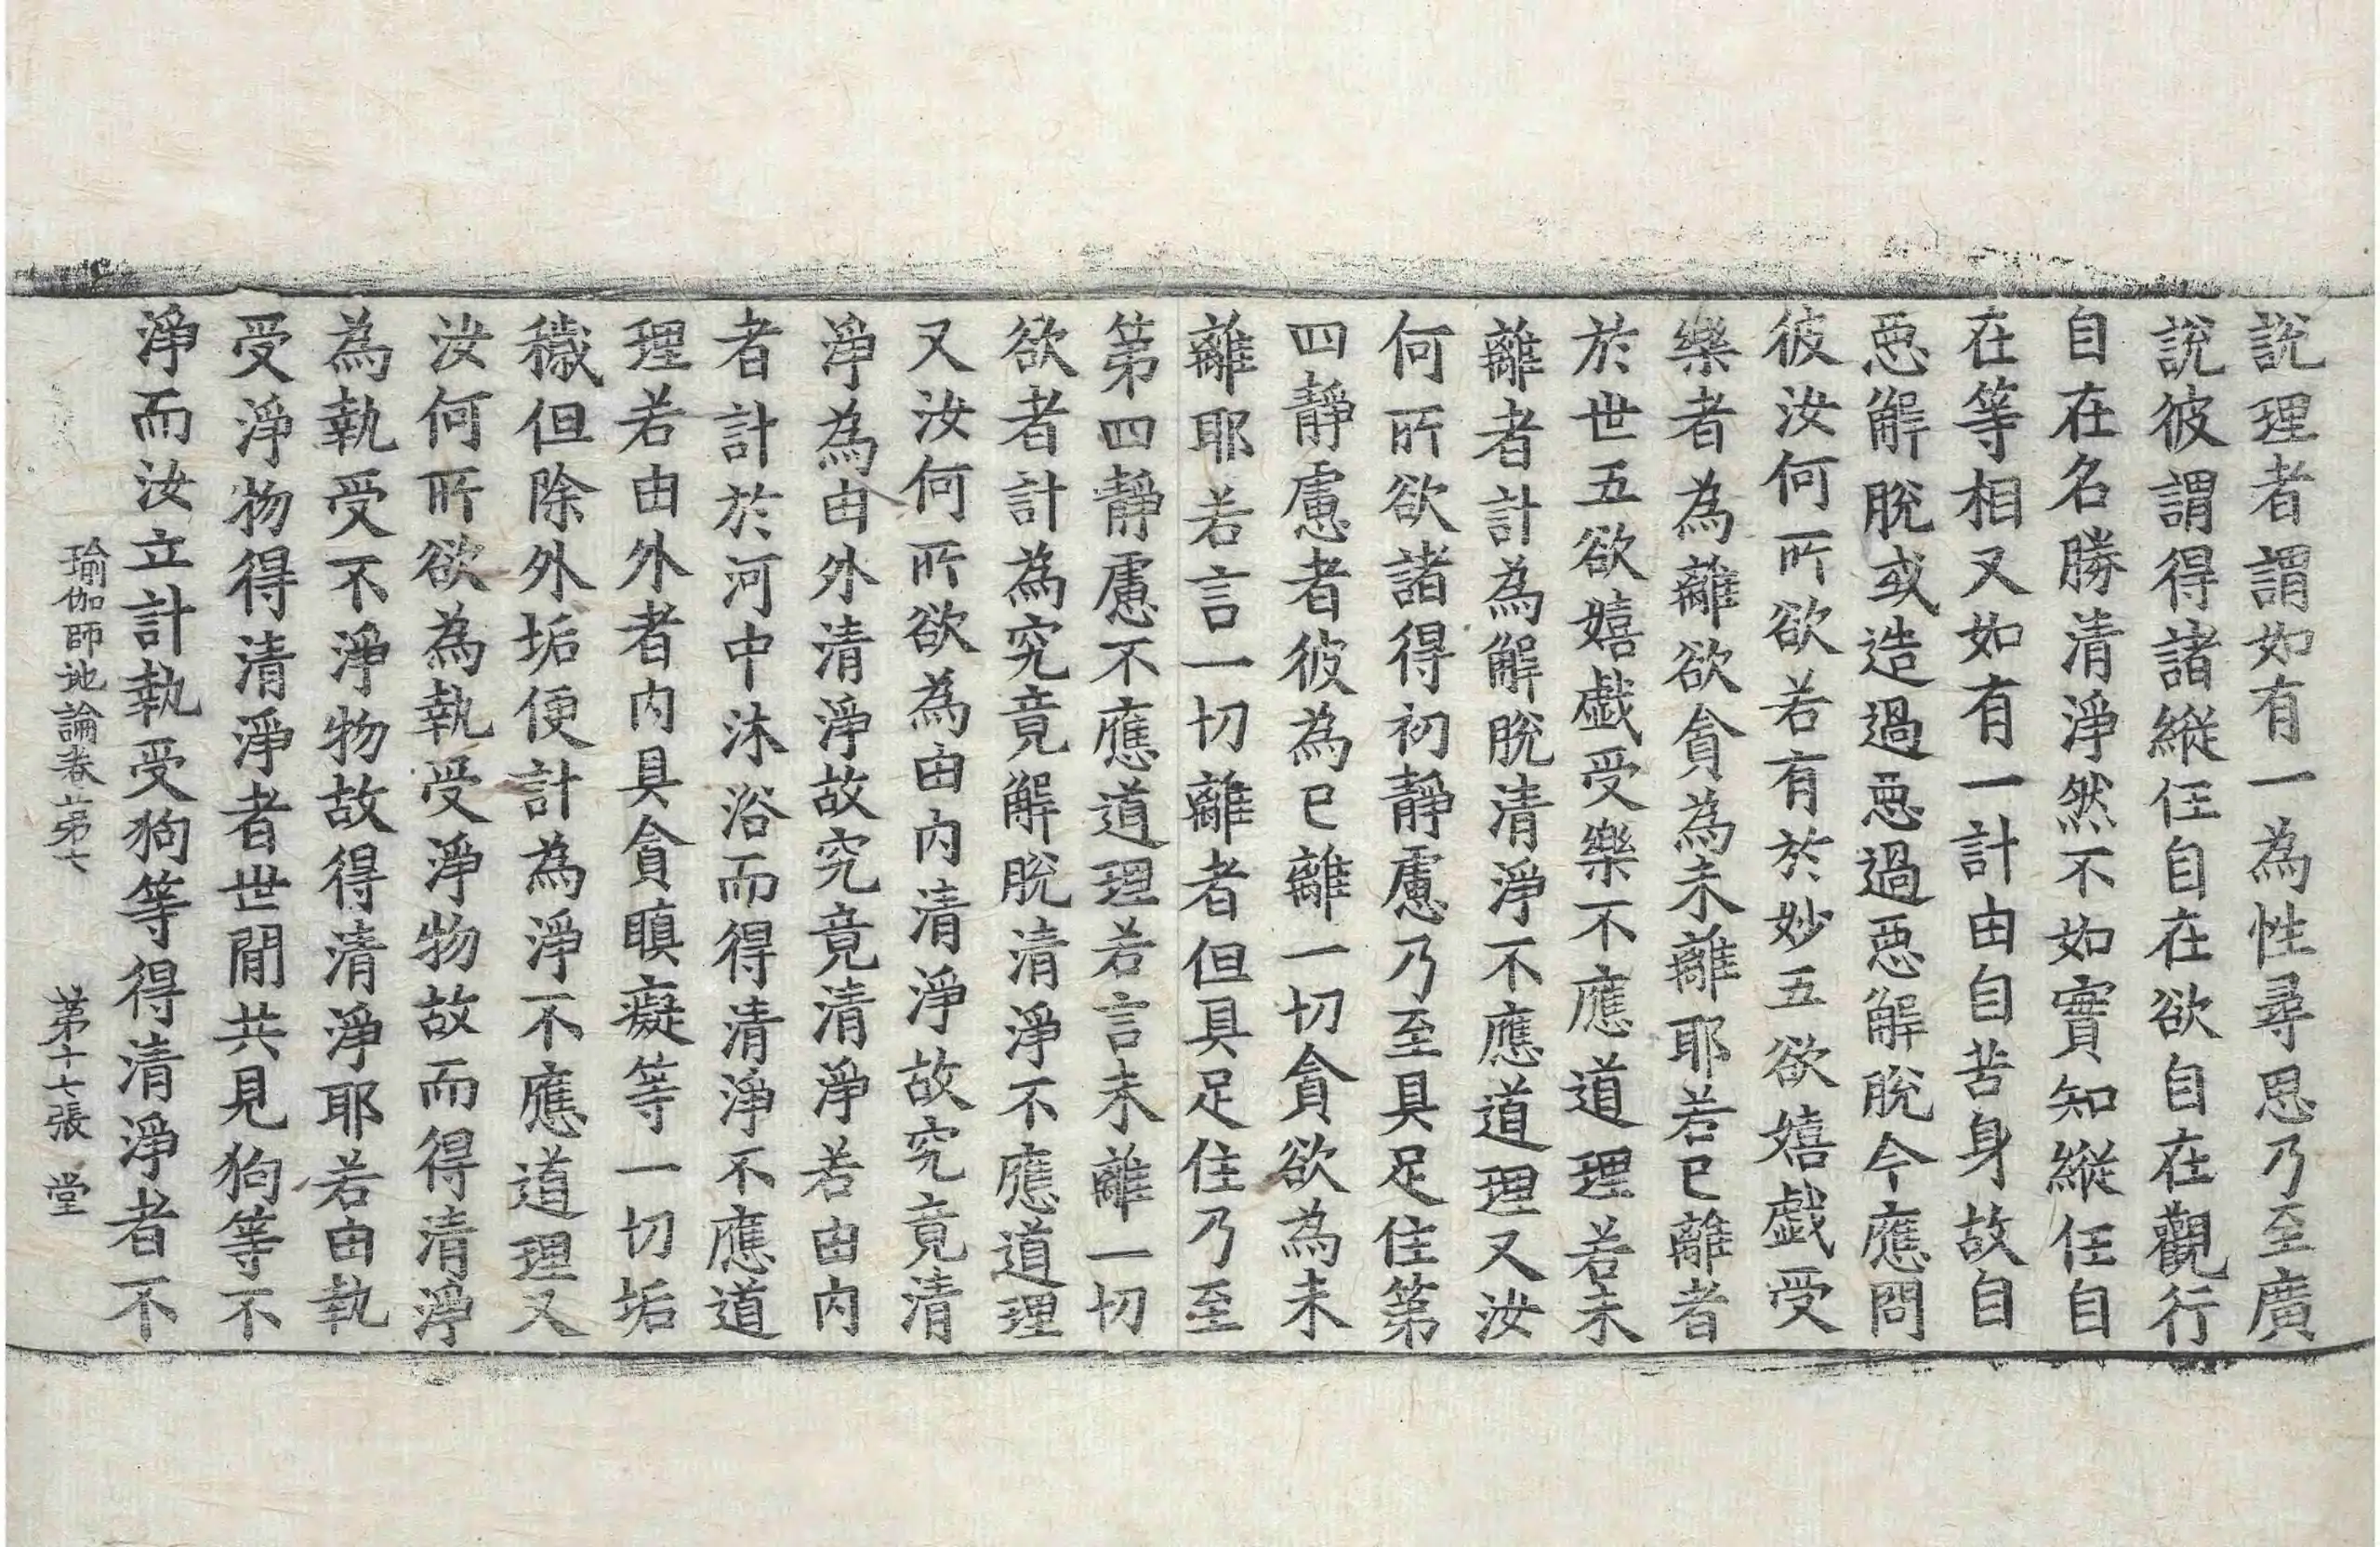 說理者謂如有一為性尋思乃至廣
說彼謂得諸縱任自在欲自在觀行
自在名勝清淨然不如實知縱任自
在等相又如有一計由自苦身故自
惡解脫或造過惡過惡解脫今應問
彼汝何所欲若有於妙五欲嬉戱受
樂者為離欲貪為未離耶若已離者
於世五欲嬉戱受樂不應道理若未
離者計為解脫清淨不應道理又汝
何所欲諸得初靜慮乃至具足住第
四靜慮者彼為已離一切貪欲為未
離耶若言一切離者但具足住乃至
第四靜慮不應道理若言未離一切
欲者計為究竟解脫清淨不應道理
又汝何所欲為由內清淨故究竟清
淨為由外清淨故究竟清淨若由內
者計於河中沐浴而得清淨不應道
理若由外者內具貪瞋癡等一切垢
穢但除外垢便計為淨不應道理又
汝何所欲為執受淨物故而得清淨
為執受不淨物故得清淨耶若由執
受淨物得清淨者世閒共見狗等不
淨而汝立計執受狗等得清淨者不
瑜伽師地論卷第七 第十七張 堂